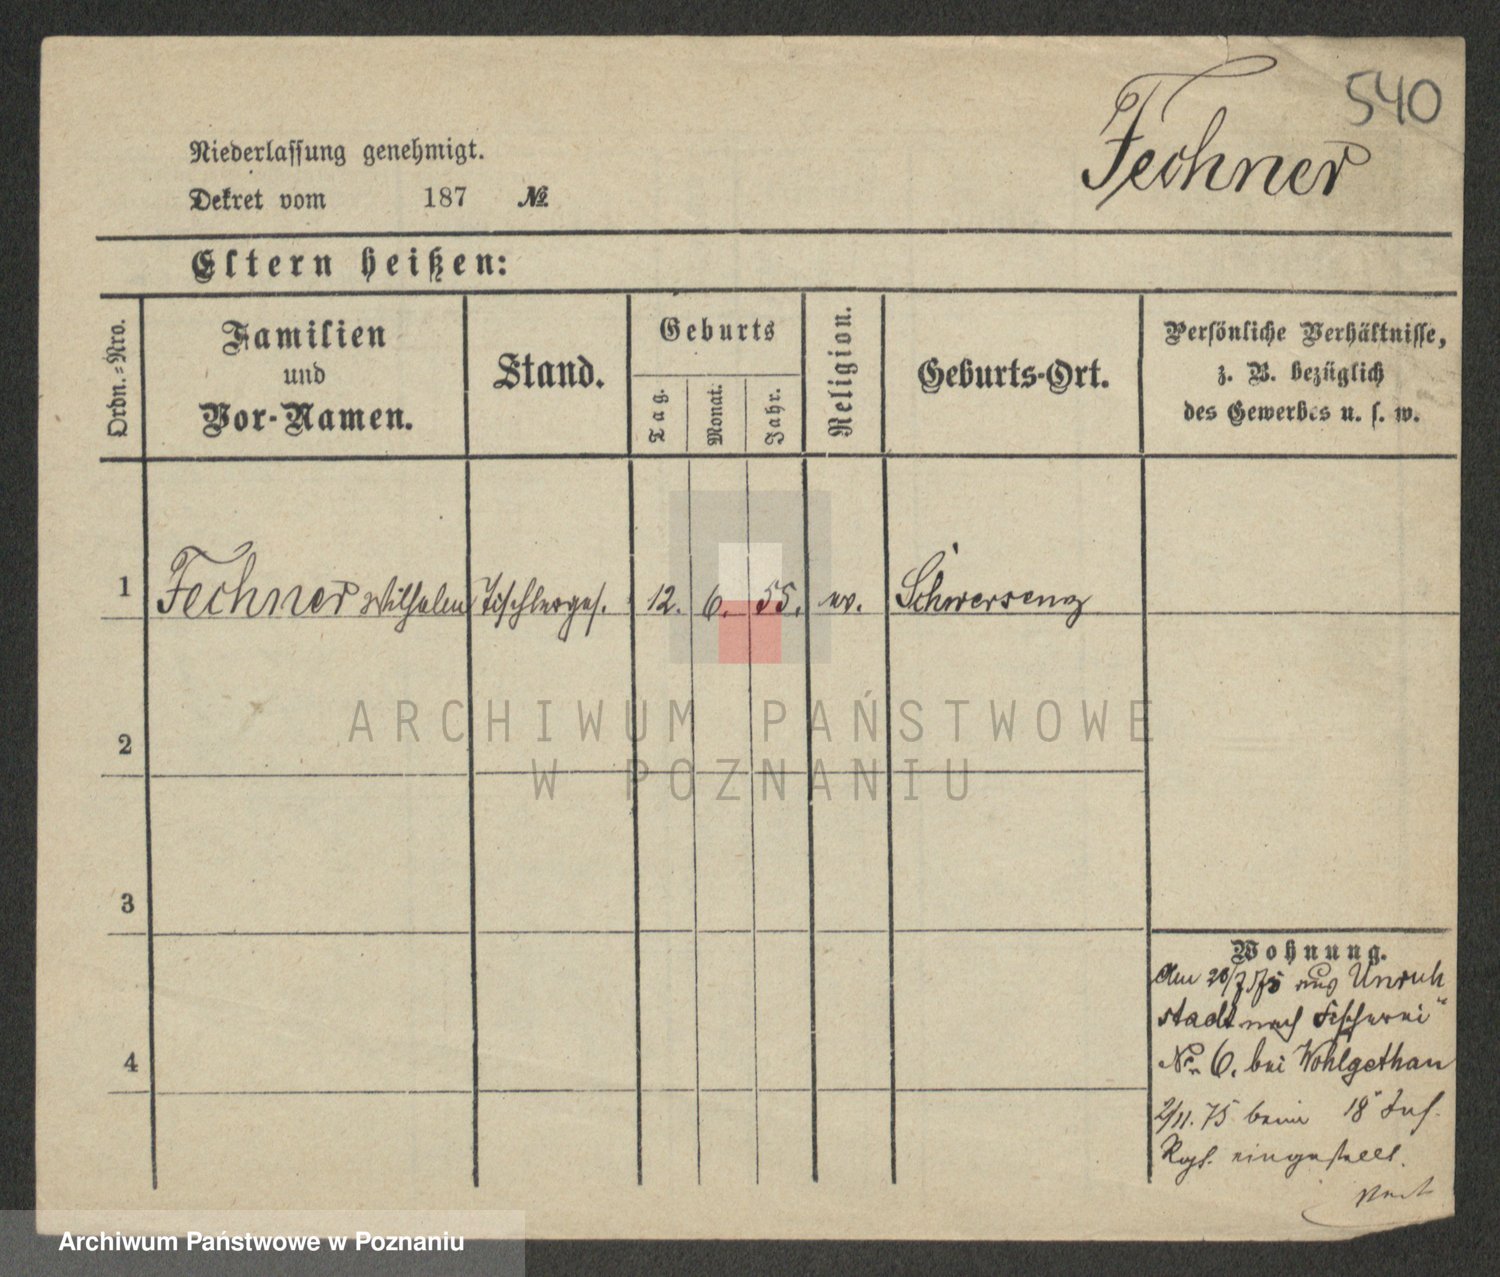 540
Fechner
Niederlassung genehmigt.
Dekret vom 187 №
Eltern heißen:
Ordn.=Nro.
Familien
und
Vor-Namen.
Stand.
Geburts
Tag.
Monat.
Jahr.
Religion.
Geburts-Ort.
Persönliche Verhältnisse,
z. B. bezüglich
des Gewerbes u. s. w.
1 Fechner Wilhelm Tischlerges. 12. 6. 55. ev. Schwersenz
2
3
4
Wohnung.
Am 20/7 75 aus Unruh
stadt nach Fischerei
No 6. bei Wohlgethan
2/11. 75 beim 18 Inf.
Rgt. eingestellt.
ARCHIWUM PAŃSTWOWE
W POZNANIU
Archiwum Państwowe w Poznaniu